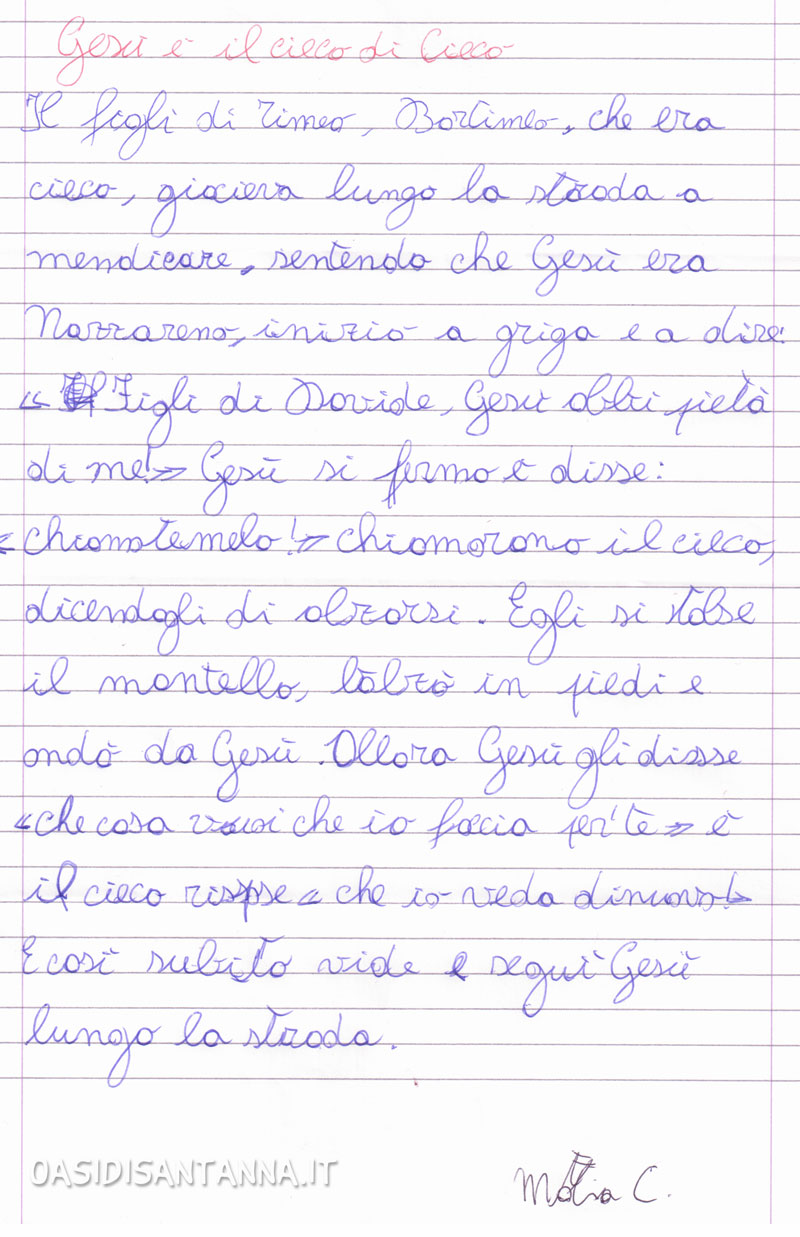 Gesù e il cieco di Cieco
Il figli di Timeo, Bartimeo, che era
cieco, giaciera lungo la strada a
mendicare, sentendo che Gesù era
Nazzareno, iniziò a griga e a dire:
« Figli di Davide, Gesù abbi pietà
di me!» Gesù si fermo e disse:
«chiamatemelo!» chiamarono il cieco,
dicendogli di alzarsi. Egli si tolse
il mantello, l'alzò in piedi e
andò da Gesù. Allora Gesù gli disse
«che cosa vuoi che io faccia per te» e
il cieco rispose « che io veda dinuovo!»
E così subito vide e seguì Gesù
lungo la strada.
OASIDISANTANNA.IT
Mattia C.